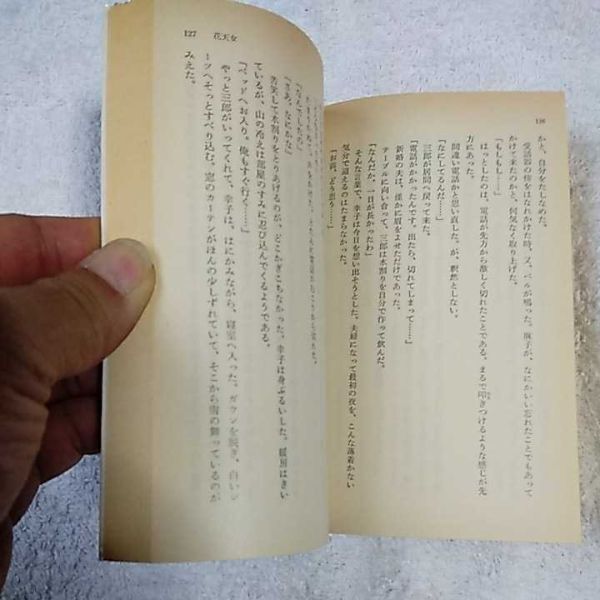 126
かと、自分をたしなめた。
受話器の傍をはなれかけた時、又、ベルが鳴った。麻子が、なにかいい忘れたことでもあって
かけて来たのかと、何気なく取り上げた。
「もしもし……」
はっとしたのは、電話が先方から激しく切れたことである。まるで叩きつけるような感じが先
方にあった。
間違い電話かと思い直した。が、釈然としない。
「なにしてるんだ……」
三郎が居間へ戻って来た。
「電話がかかったんです。出たら、切れてしまって……」
新婚の夫は、僅かに眉をよせただけであった。
テーブルに向い合って、三郎は水割りを自分で作って飲んだ。
「なんだか、一日が長かったわ」
そんな言葉で、幸子は今日を想い出そうとした。夫婦になって最初の夜を、こんな落着かない
気分で迎えるのはたまらなかった。
「お前、どう思う……」
127 花天女
「なんでしたの」
「さあ、なにかな」
苦笑して水割りをとりあげるのが、どこかぎこちなかった。幸子は身ぶるいした。暖房はきい
ているが、山の冷えは部屋のすみに忍び込んでくるようである。
「ベッドへお入り。俺もすぐ行く……」
やっと三郎がいってくれて、幸子は、はにかみながら、寝室へ入った。ガウンを脱ぎ、白いシ
ーツへそっとすべり込む。窓のカーテンがほんの少しずれていて、そこから雪の舞っているのが
みえた。